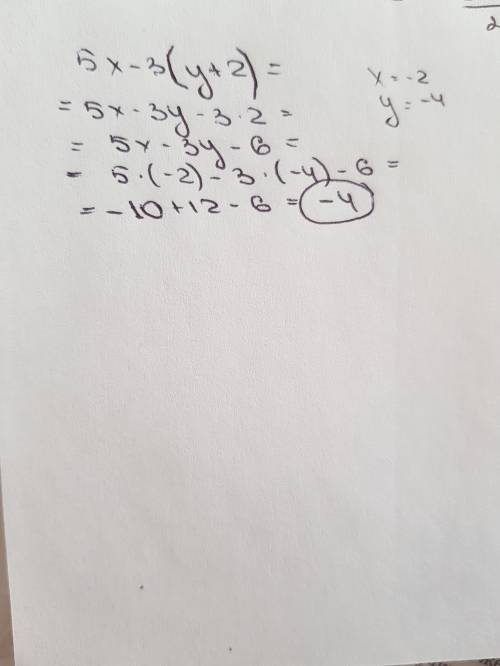 2
5x - 3(y+2) =
x = -2
y = -4
= 5x - 3y - 3·2 =
= 5x - 3y - 6 =
= 5·(-2) - 3·(-4) - 6 =
= -10 + 12 - 6 = -4